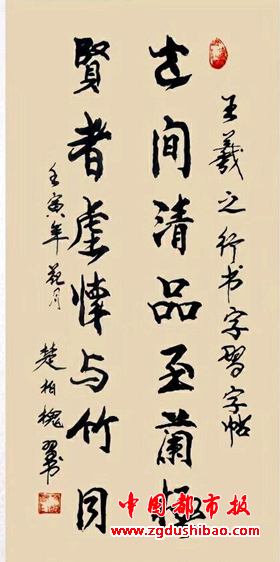 王羲之行书字習字帖
世间清品至蘭極
賢者虚懷与竹同
壬寅年花月
楚柏槐習书
中国都市报
www.zgdushibao.com